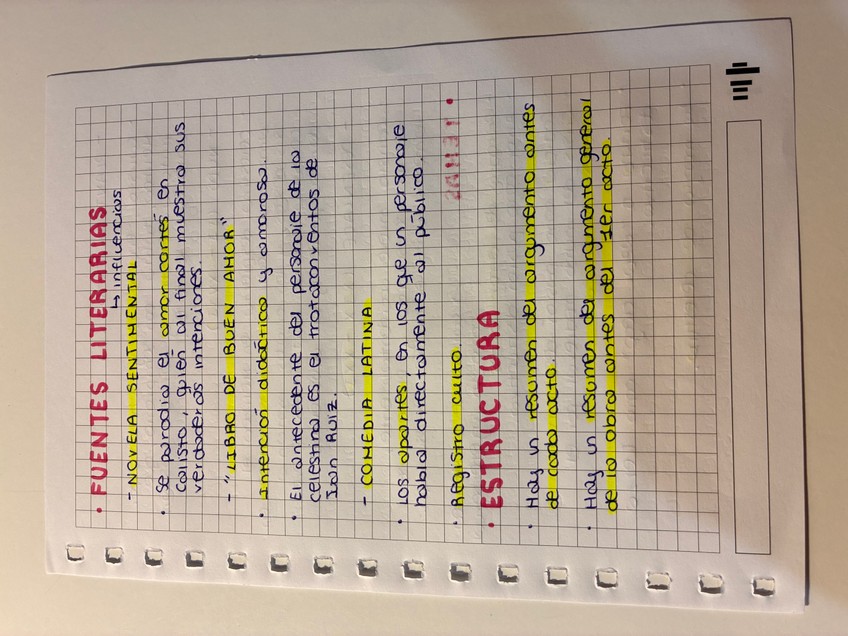 • FUENTES LITERARIAS
↳ influencias
- NOVELA SENTIMENTAL
• Se parodia el amor cortés en
Calisto, quién al final muestra sus
verdaderas intenciones.
- "LIBRO DE BUEN AMOR"
• Intención didáctica y amorosa.
• El antecedente del personaje de la
celestina es el trotaconventos de
Juan Ruiz.
- COMEDIA LATINA
• Los apartes, en los que un personaje
habla directamente al público.
• Registro culto.
• ESTRUCTURA
• Hay un resumen del argumento antes
de cada acto.
• Hay un resumen del argumento general
de la obra antes del 1er acto.